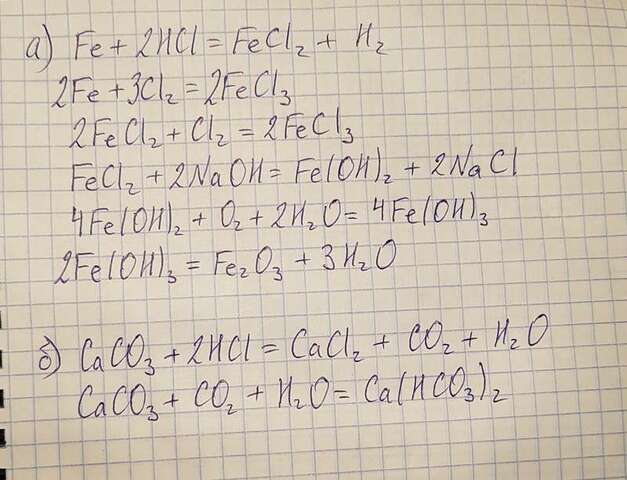 а) Fe + 2HCl = FeCl₂ + H₂
2Fe + 3Cl₂ = 2FeCl₃
2FeCl₂ + Cl₂ = 2FeCl₃
FeCl₂ + 2NaOH = Fe(OH)₂ + 2NaCl
4Fe(OH)₂ + O₂ + 2H₂O = 4Fe(OH)₃
2Fe(OH)₃ = Fe₂O₃ + 3H₂O
б) CaCO₃ + 2HCl = CaCl₂ + CO₂ + H₂O
CaCO₃ + CO₂ + H₂O = Ca(HCO₃)₂